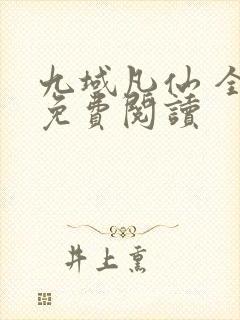 九域凡仙 全
免費閱讀
井上熏